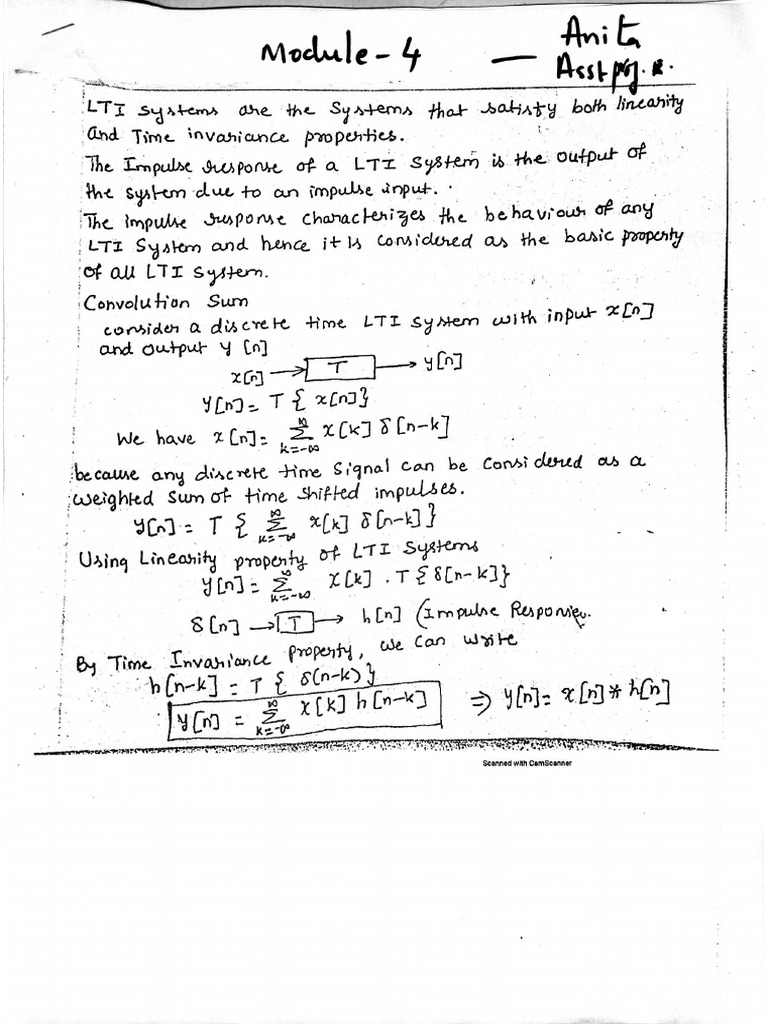 Module-4 — Anita
Asst prof.
LTI systems are the systems that satisfy both linearity
and Time invariance properties.
The Impulse response of a LTI system is the output of
the system due to an impulse input.
The impulse response characterizes the behaviour of any
LTI system and hence it is considered as the basic property
of all LTI system.
Convolution Sum
consider a discrete time LTI system with input x[n]
and output y[n]
x[n] → T → y[n]
y[n] = T { x[n]}
We have x[n] = ∑ k=-∞ ∞ x[k] δ[n-k]
because any discrete time signal can be considered as a
weighted sum of time shifted impulses.
y[n] = T { ∑ k=-∞ ∞ x[k] δ[n-k]}
Using Linearity property of LTI systems
y[n] = ∑ k=-∞ ∞ x[k] . T{δ[n-k]}
δ[n] → T → h[n] (Impulse Response.
By Time Invariance property, we can write
h[n-k] = T{ δ(n-k)}
y[n] = ∑ k=-∞ ∞ x[k] h[n-k] ⇒ y[n] = x[n] * h[n]
Scanned with CamScanner